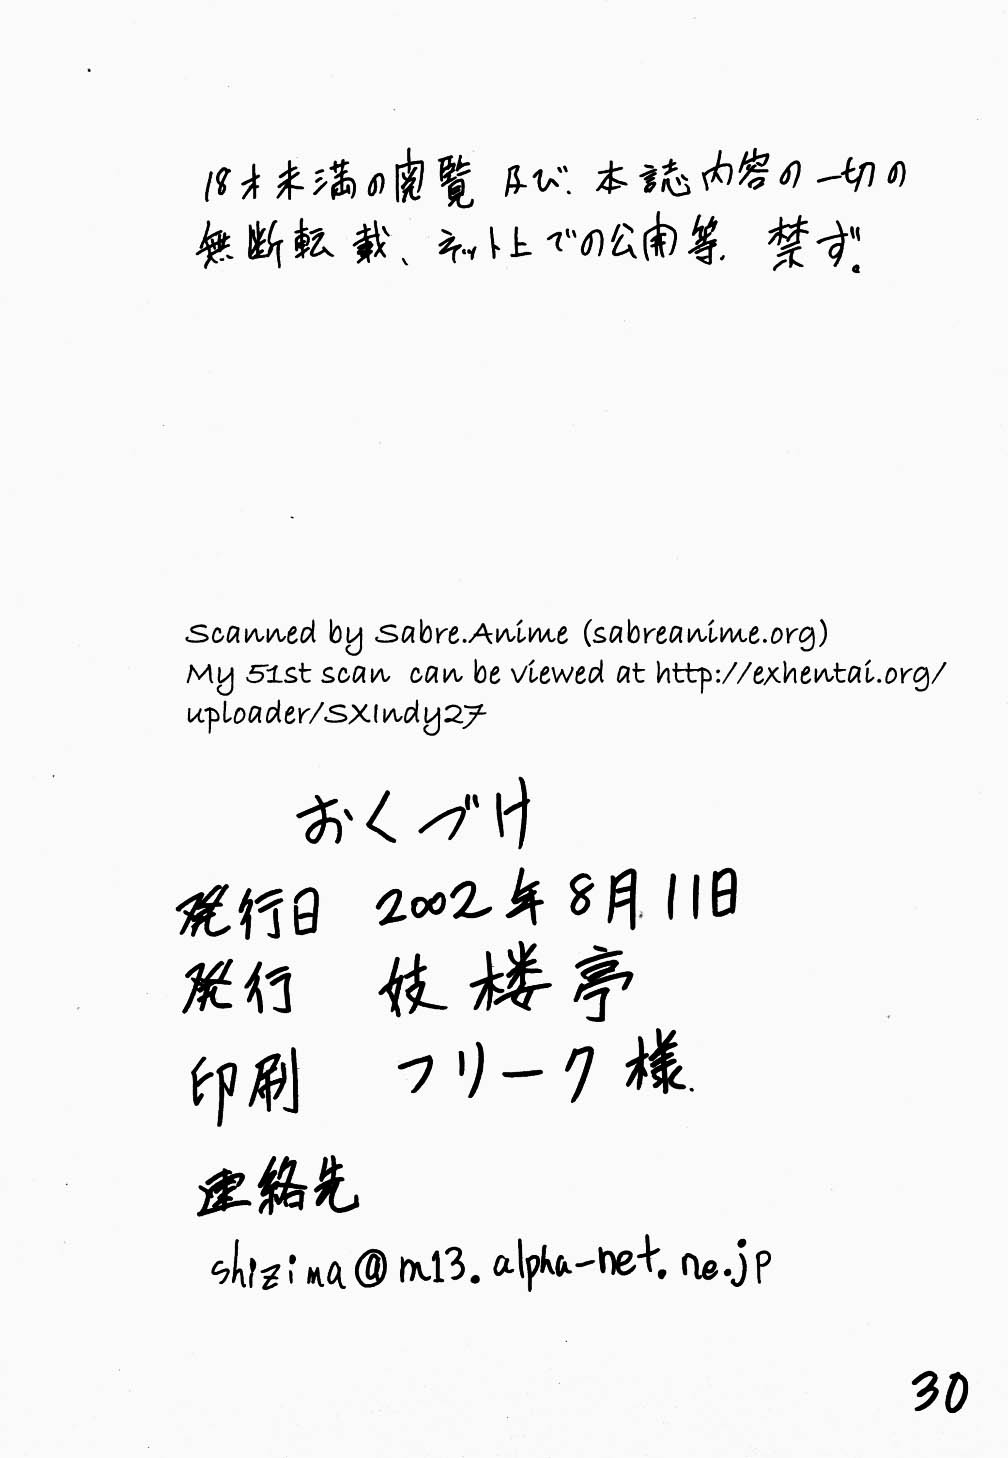 18才未満の閲覧 及び、本誌内容の一切の
無断転載、ネット上での公開等、禁ず。
Scanned by Sabre.Anime (sabreanime.org)
My 51st scan can be viewed at http://exhentai.org/
uploader/SXIndy27
おくづけ
発行日 2002年8月11日
発行 妓楼亭
印刷 フリーク様.
連絡先
shizima@m13.alpha-net.ne.jp
30